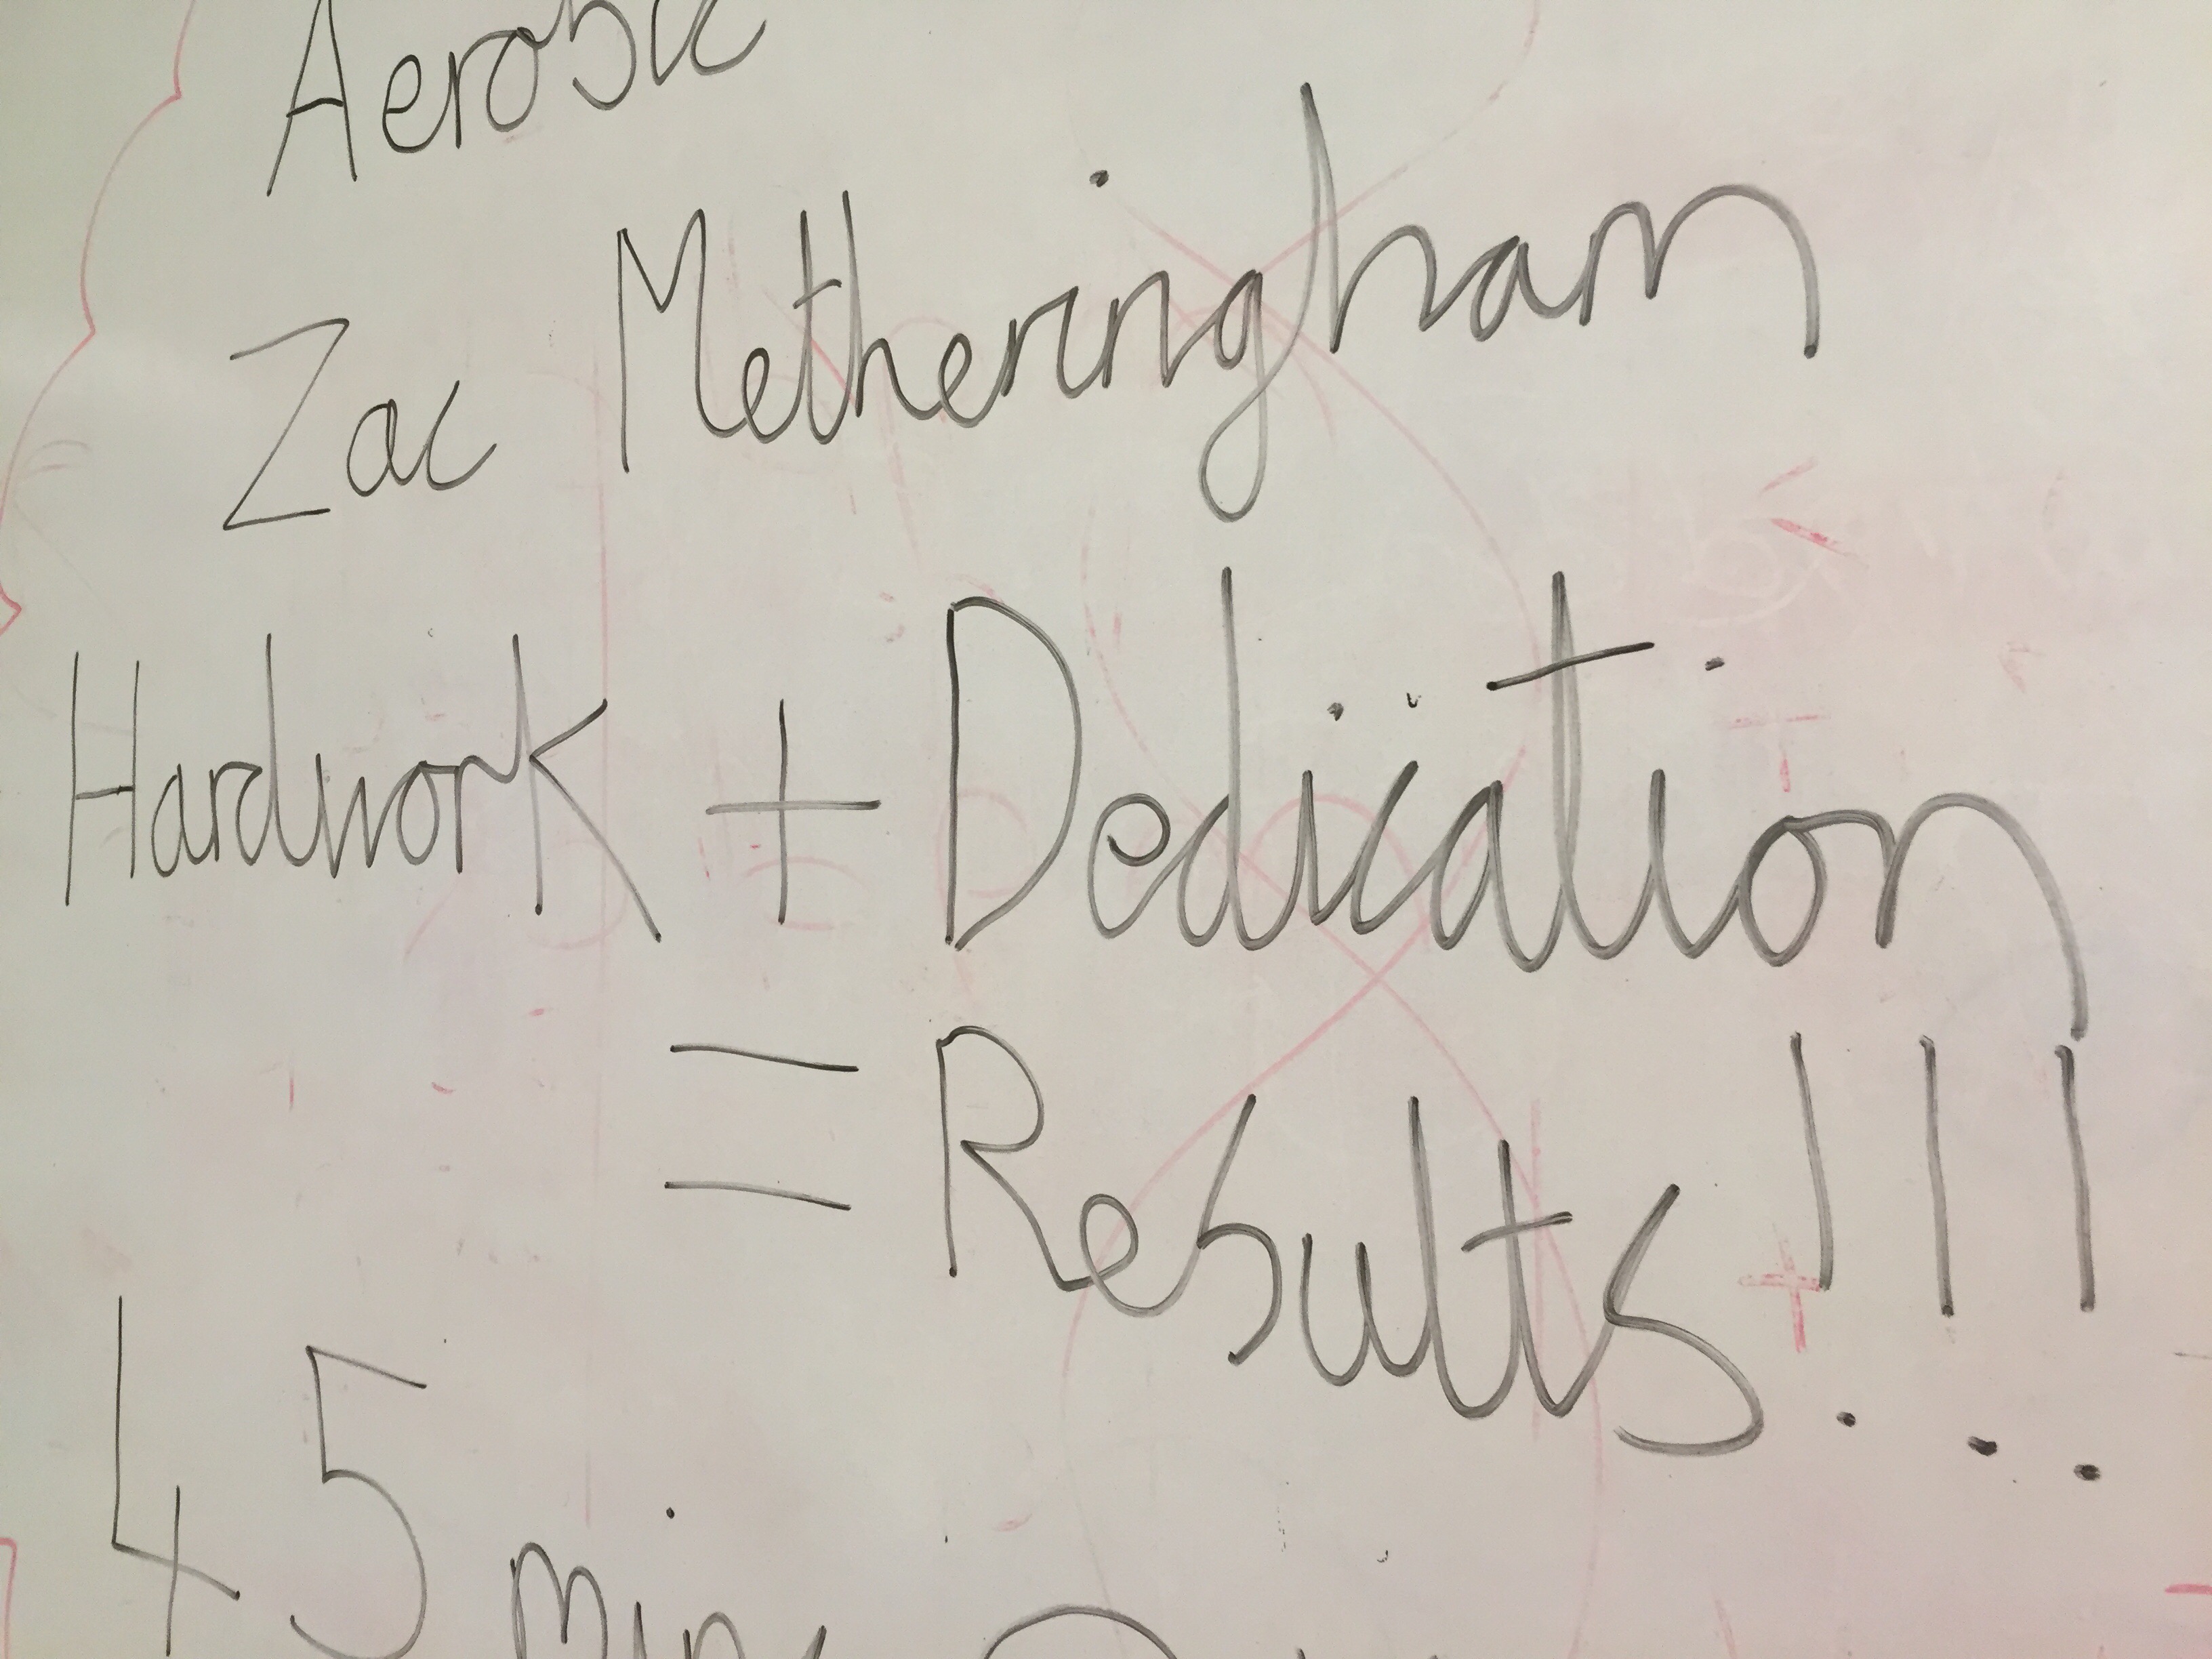 Aerobic
Zac Metheringham
Hardwork + Dedication
= Results!!!
45 mins